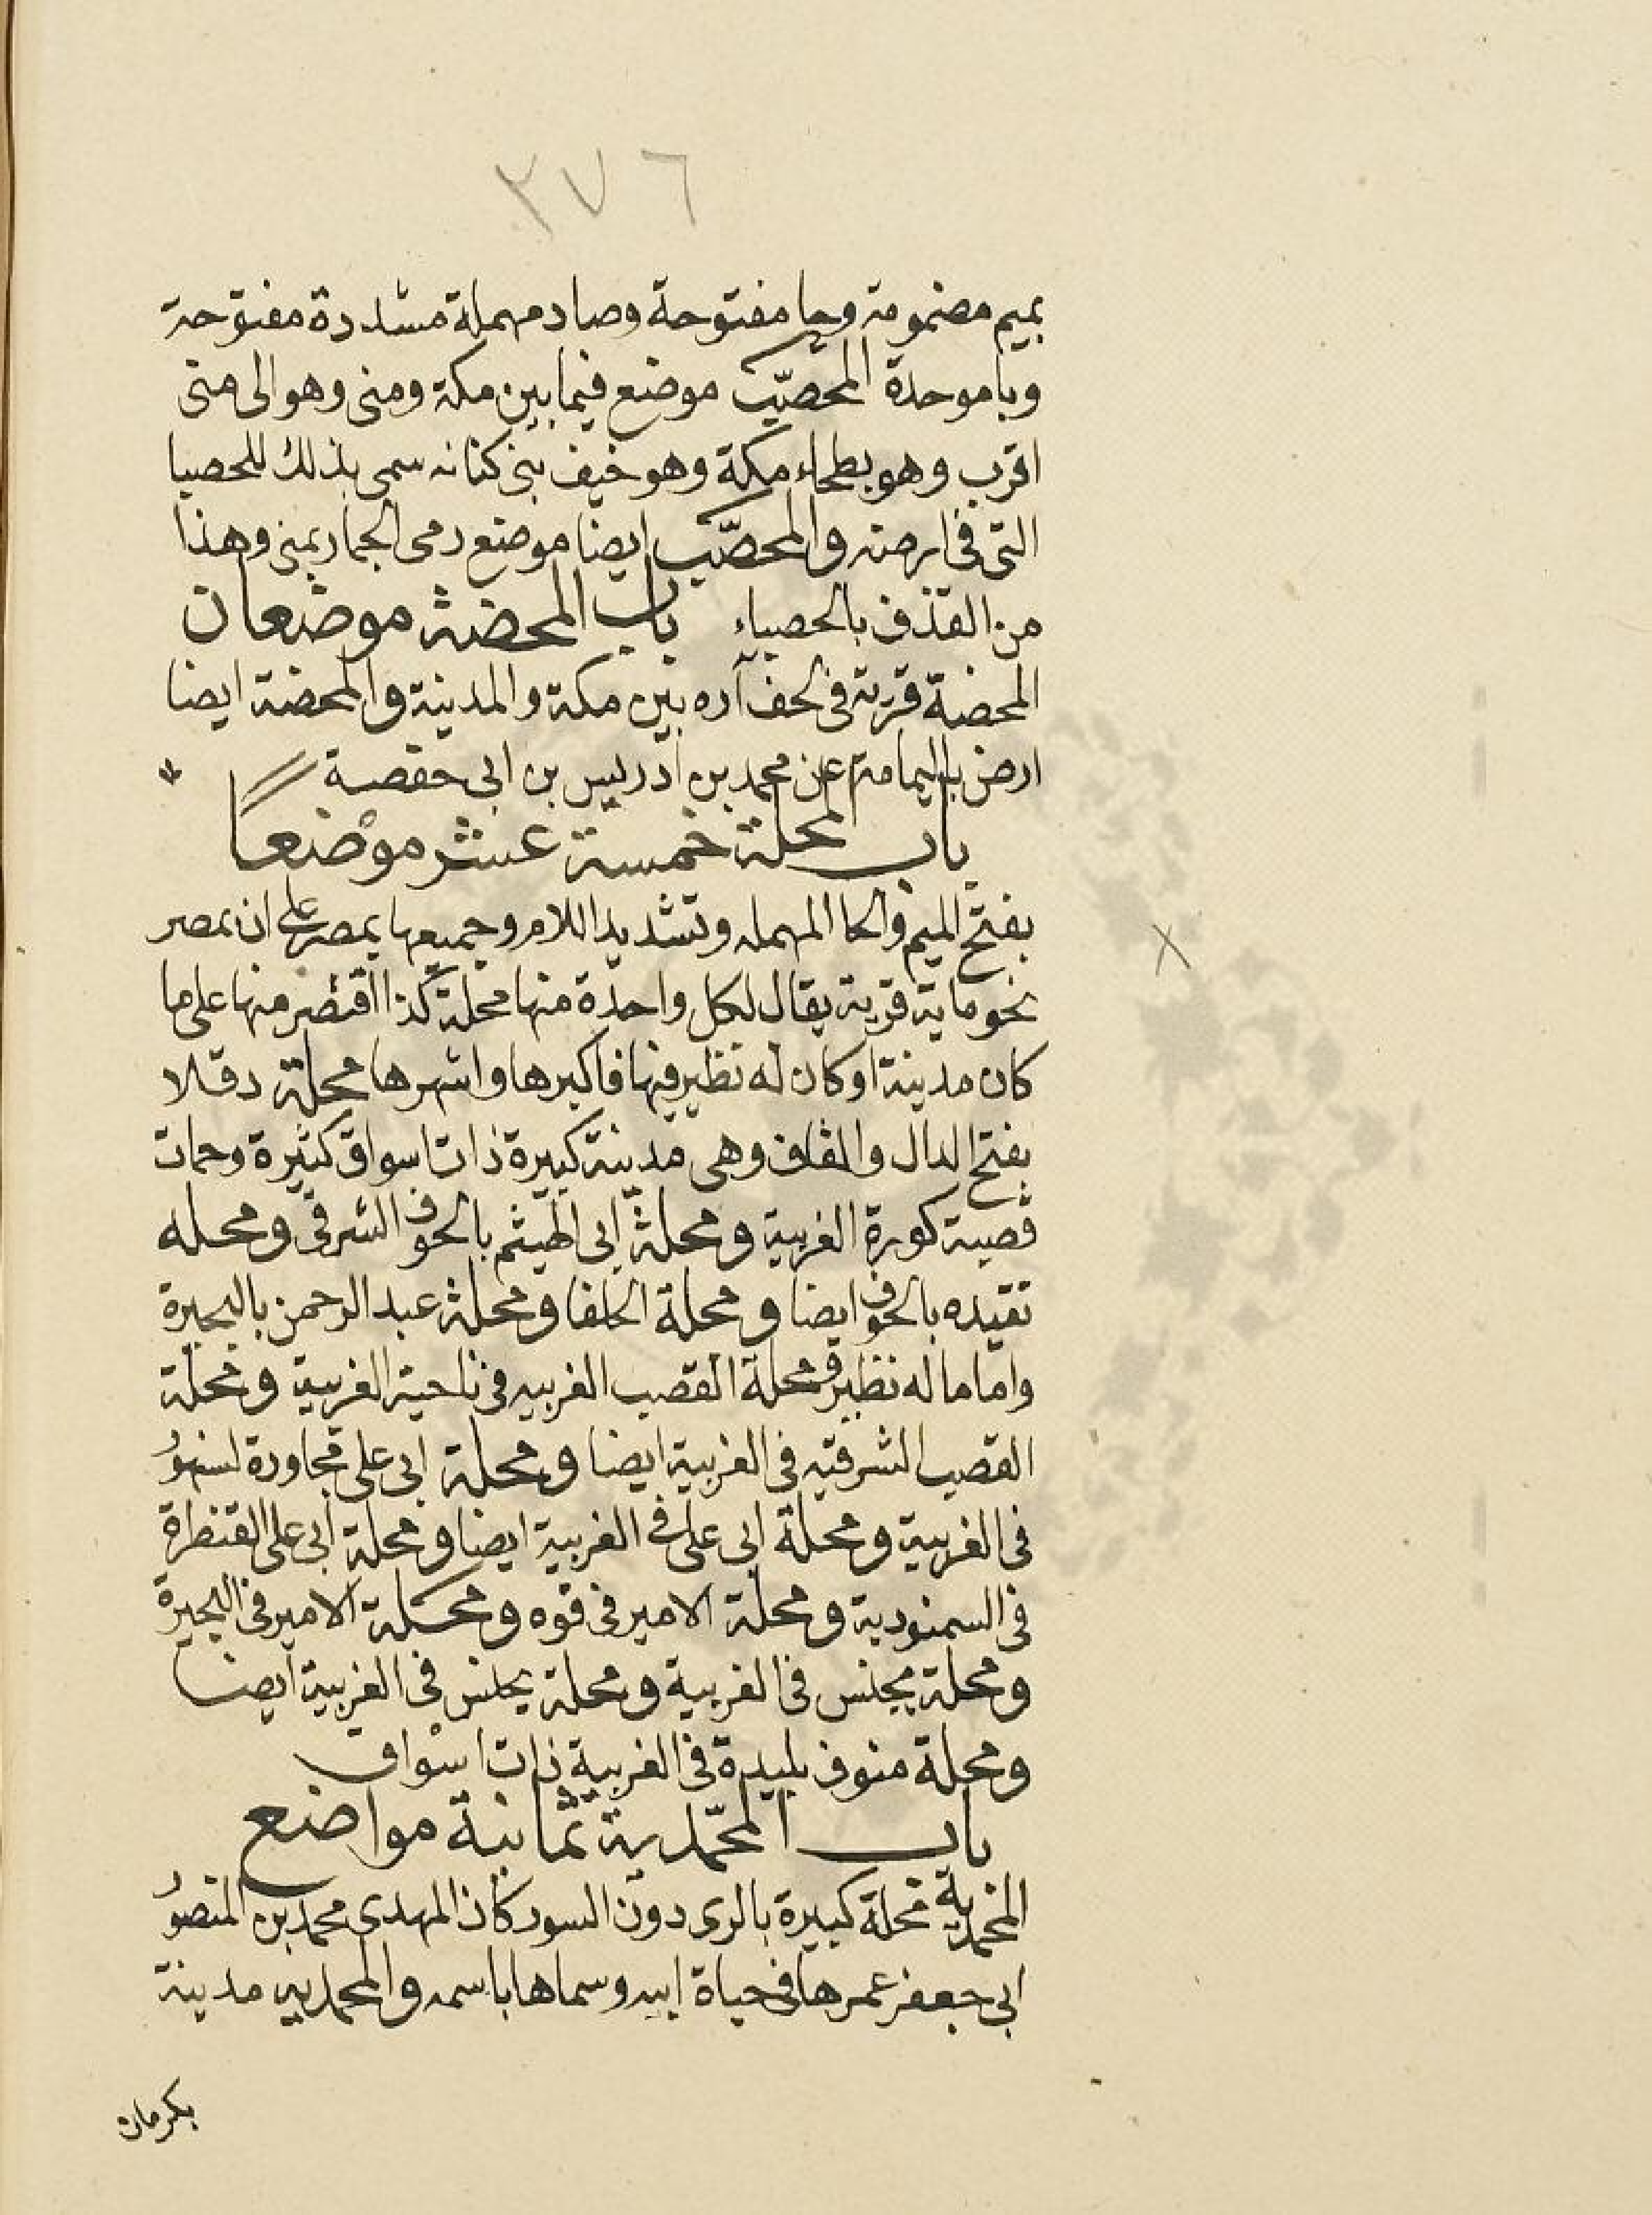 ٣٧٦
بميم مضمومة وحا مفتوحة وصاد مهملة مشددة مفتوحة
وبا موحدة المحصّب موضع فيما بين مكة ومنى وهو الى منى
اقرب وهو بطحاء مكة وهو خيف بنى كنانه سمى بذلك للحصبا
التى فى ارضه والمحصّب ايضا موضع رمى الجمار بمنى وهذا
من القذف بالحصباء باب المحضة موضعان
المحضة قرية فى لحف آره بين مكة والمدينة والمحضة ايضا
ارض باليمامة عن محمد بن ادريس بن ابى حفصة
باب محلة خمسة عشر موضعاً
بفتح الميم والحا المهمله وتشديد اللام وجميعها بمصر على ان بمصر
نحو ماية قرية يقال لكل واحدة منها محلة كذا اقتصر منها على ما
كان مدينة او كان له نظير فيها فاكبرها واشهرها محلة دقلا
بفتح الدال والقاف وهى مدينة كبيرة ذات اسواق كثيرة وحمات
قصبة كورة الغربية ومحلة ابى الهيثم بالحوف الشرقى ومحله
نقيده بالحوف ايضا ومحلة الخلفا ومحلة عبد الرحمن بالبحيرة
واما ما له نظير فمحلة القصب الغربيه فى ناحية الغربية ومحلة
القصب الشرقيه فى الغربية ايضا ومحلة ابى على مجاورة لسنهور
فى الغربية ومحلة ابى على فى الغربية ايضا ومحلة ابى على القنطرة
فى السمنودية ومحلة الامير فى فوه ومحلة الامير فى البحيرة
ومحلة يجنس فى الغربية ومحلة يحنس فى الغربية ايضا
ومحلة منوف بليدة فى الغربية ذات اسواق
باب المحمّدية ثمانية مواضع
المحمدية محلة كبيرة بالرى دون السور كان المهدى محمد بن المنصور
ابى جعفر عمرها فى حياة ابيه وسماها باسمه والمحمديه مدينة
بكرمان